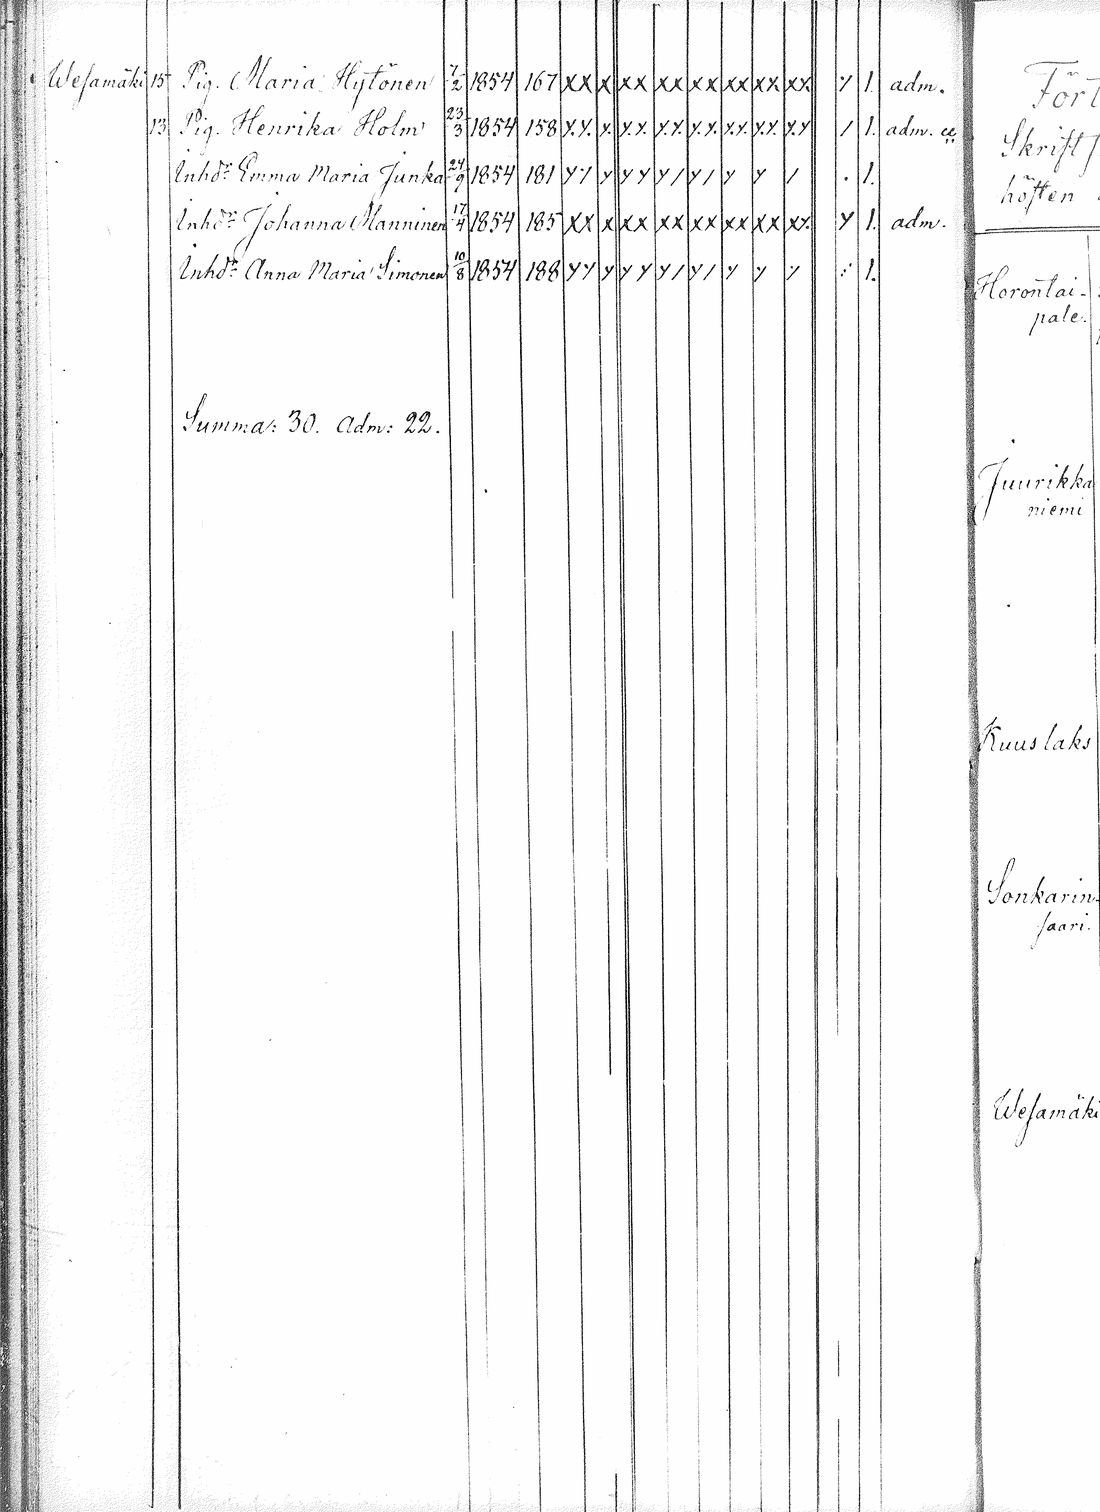 Wesamäki 15 Pig. Maria Hytönen 7/2 1854 167 xx x xx xx xx xx xx xx y 1. adm.
13 Pig. Henrika Holm 23/3 1854 158 y.y. y. y.y. y.y. y.y. y.y. y.y. y.y / 1. adm.
Inhdr Emma Maria Junka 1854 181 yy y yy y/ y/ y y / . 1.
Inhdr Johanna Manninen 17/4 1854 185 xx x xx xx xx xx xx xx y 1. adm.
Inhdr Anna Maria Simonen 10/8 1854 188 yy y yy y/ y/ y y y 1.
Summa: 30. Adm: 22.
Fört
Skrift
höften
Horontai-
pale.
Juurikka
niemi
Kuuslaks
Sonkarin-
saari.
Wesamäki